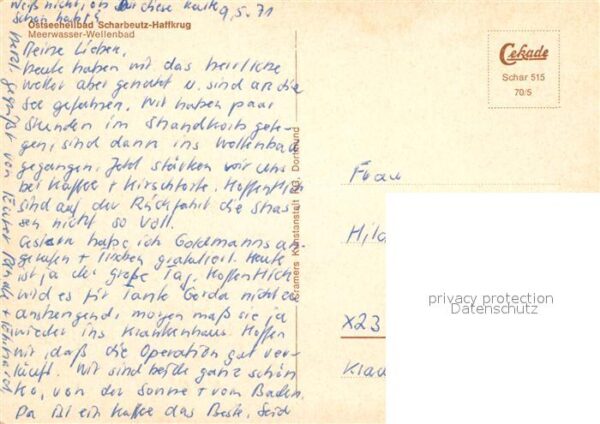 Weiß nicht, ob Du diese Karte
schon hast?
9.5.71
Ostseeheilbad Scharbeutz-Haffkrug
Meerwasser-Wellenbad
Meine Lieben,
heute haben wir das herrliche
Wetter aber genutzt u. sind an die
See gefahren. Wir haben paar
Stunden im Strandkorb gele-
gen, sind dann ins Wellenbad
gegangen. Jetzt stärken wir uns
bei Kaffee + Kirschtorte. Hoffentlich
sind auf der Rückfahrt die Stras-
sen nicht so voll.
Gestern habe ich Goldmanns an-
gerufen + gratuliert. Heute
ist ja der große Tag. Hoffentlich
wird es für Tante Gerda nicht zu
anstrengend, morgen muß sie ja
wieder ins Krankenhaus. Hoffen
wir, daß die Operation gut ver-
läuft. Wir sind beide ganz schön
k.o. von der Sonne + vom Baden.
Da ist ein Kaffee das Beste. Seid
herzl. gegrüßt von Eurer
Cramers Kunstanstalt KG. Dortmund
Cekade
Schar 515
70/5
Frau
Hild
X23
Klau
privacy protection
Datenschutz